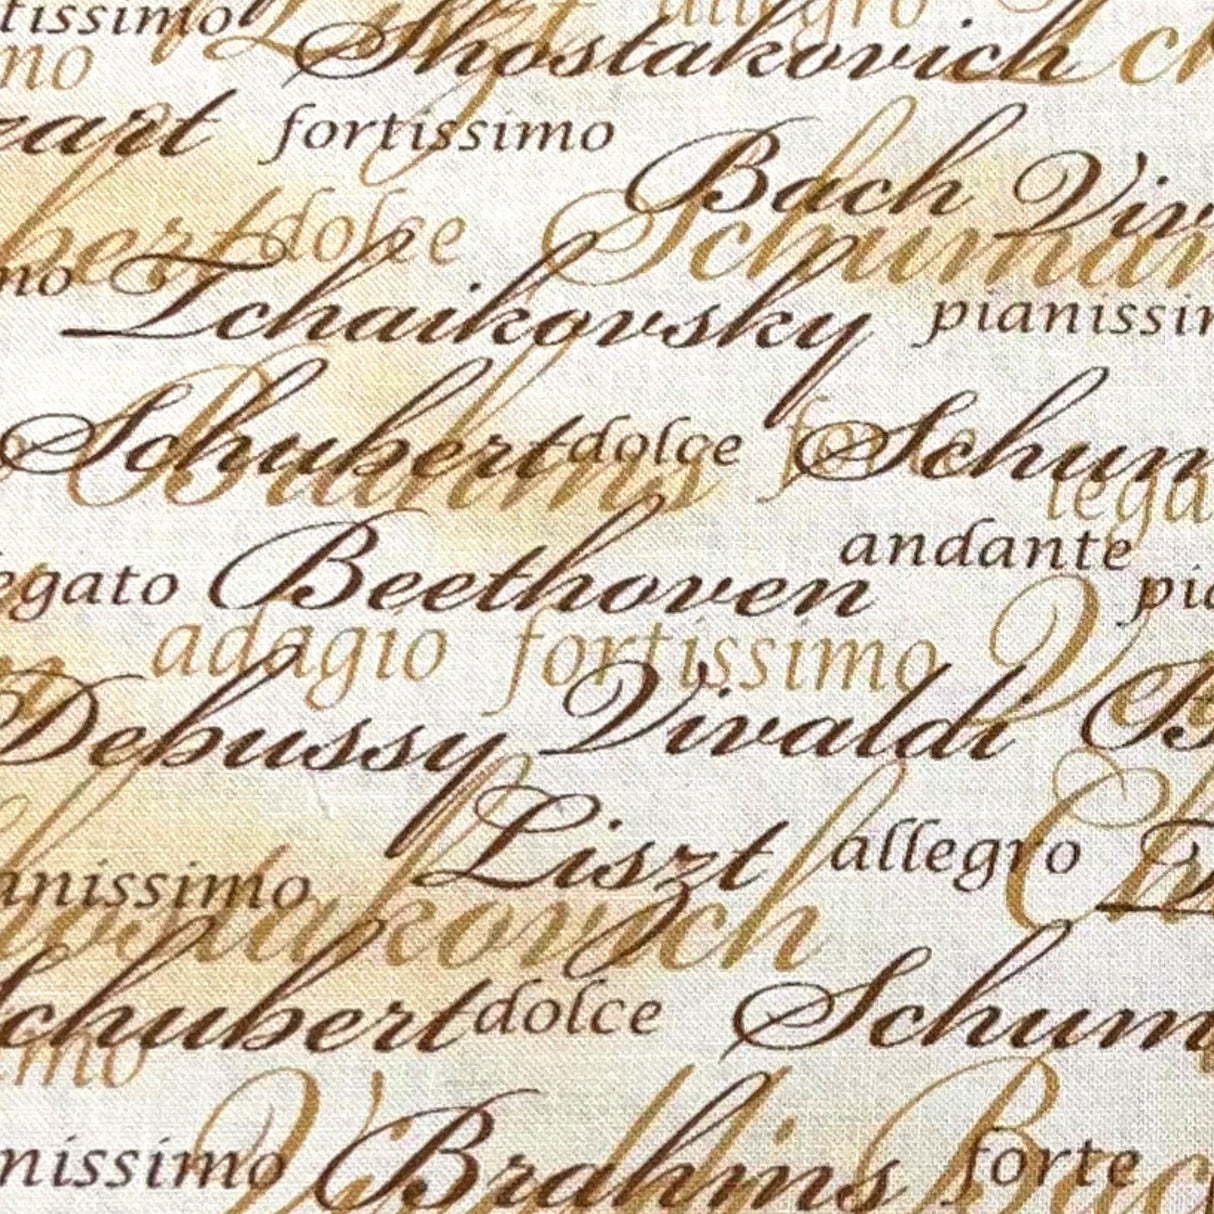 tissimo Liszt allegro
no Shostakovich
zart fortissimo
Bach Viv
bert dolce Schuman
no Tchaikovsky pianissim
Schubert dolce forte Schum
Brahms lega
egato Beethoven andante
pia
adagio fortissimo
Debussy Vivaldi B
Liszt allegro
anissimo
Shostakovich
Schubert dolce Schum
imo
nissimo Brahms forte
Vivaldi Bac